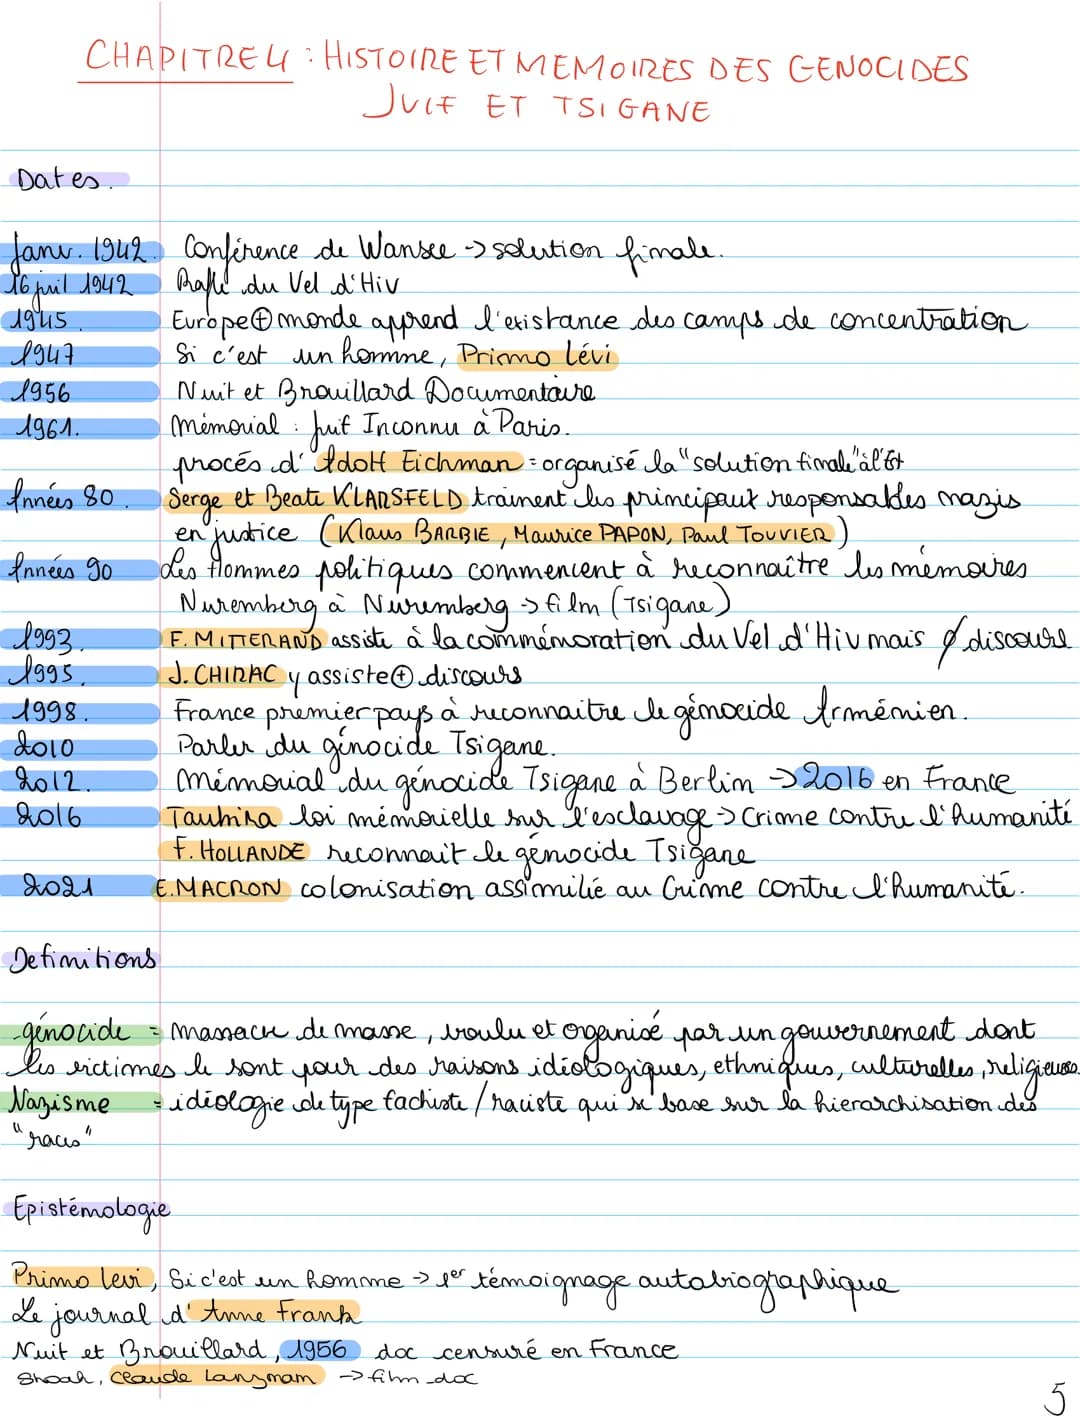 CHAPITRE 4 : HISTOIRE ET MEMOIRES DES GENOCIDES
JUIF ET TSIGANE
Dates.
Janv. 1942. Conférence de Wansee -> solution finale.
16 juil 1942 Rafle du Vel d'Hiv
1945. Europe ⊕ monde apprend l'existance des camps de concentration
1947 Si c'est un homme, Primo Lévi
1956 Nuit et Brouillard Documentaire
1961. Mémorial : Juif Inconnu à Paris.
procés d'Adolf Eichman = organisé la "solution finale" à l'Est
Années 80. Serge et Beate KLARSFELD trainent les principaux responsables nazis
en justice (Klaus BARBIE, Maurice PAPON, Paul TOUVIER)
Années 90 Les Hommes politiques commencent à reconnaître les mémoires
Nuremberg à Nuremberg -> film (Tsigane)
1993. F. MITTERAND assiste à la commémoration du Vel d'Hiv mais ∅ discours
1995. J. CHIRAC y assiste ⊕ discours
1998. France premier pays à reconnaitre le génocide Arménien.
2010 Parler du génocide Tsigane.
2012. Mémorial du génocide Tsigane à Berlin -> 2016 en France
2016 Taubira loi mémorielle sur l'esclavage -> Crime contre l'humanité
F. HOLLANDE reconnait le génocide Tsigane
2021 E.MACRON colonisation assimilié au Crime contre l'humanité.
Definitions
génocide = massacre de masse, voulu et organisé par un gouvernement dont
les victimes le sont pour des raisons idéologiques, ethniques, culturelles, religieuses.
Nazisme = idéologie de type fachiste / raciste qui se base sur la hierarchisation des
"races"
Epistémologie
Primo Levi, Si c'est un homme -> 1er témoignage autobiographique
Le journal d'Anne Frank
Nuit et Brouillard, 1956 doc censuré en France
Shoah, Claude Lanzmann -> film doc
5